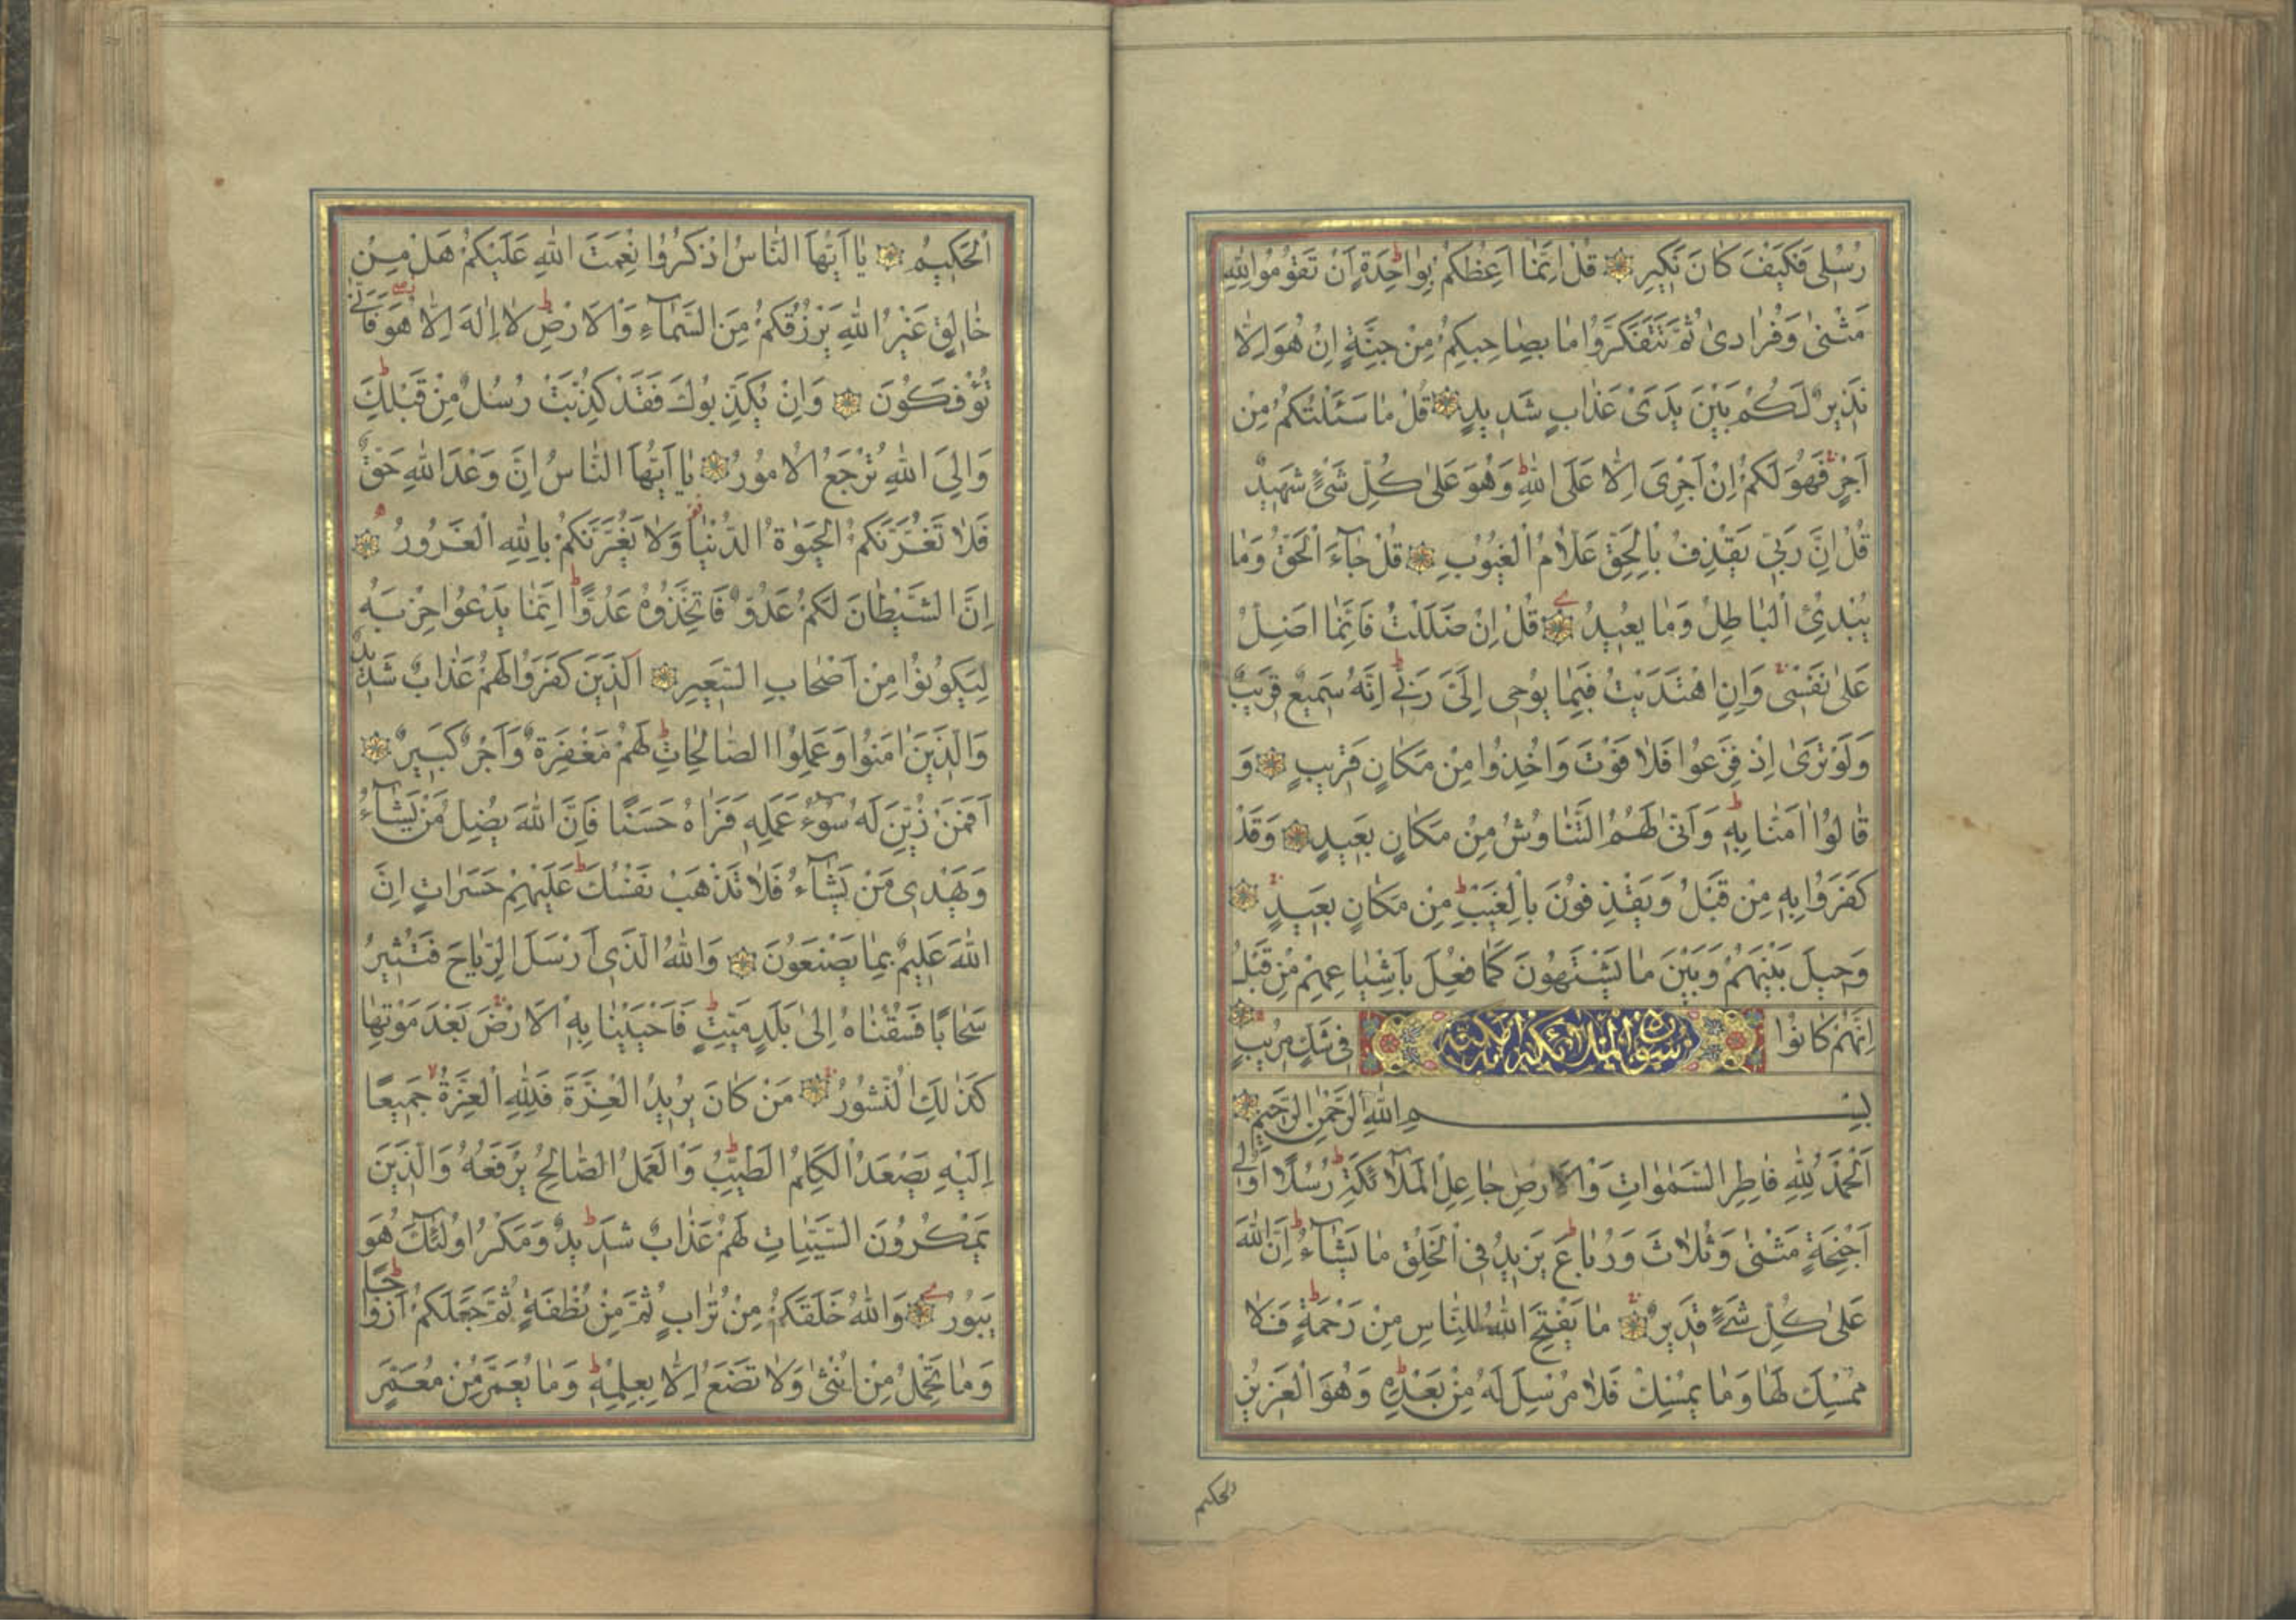 رُسُلِى فَكَيْفَ كَانَ نَكِيرِ قُلْ اِنَّمٰا اَعِظُكُمْ بِوٰاحِدَةٍ اَنْ تَقُومُوا لِلّٰهِ
مَثْنىٰ وَفُرٰادىٰ ثُمَّ تَتَفَكَّرُوا مٰا بِصٰاحِبِكُمْ مِنْ جِنَّةٍ اِنْ هُوَ اِلّٰا
نَذِيرٌ لَكُمْ بَيْنَ يَدَىْ عَذٰابٍ شَدِيدٍ قُلْ مٰا سَئَلْتُكُمْ مِنْ
اَجْرٍ فَهُوَ لَكُمْ اِنْ اَجْرِىَ اِلّٰا عَلَى اللّٰهِ وَهُوَ عَلىٰ كُلِّ شَىْءٍ شَهِيدٌ
قُلْ اِنَّ رَبّى يَقْذِفُ بِالْحَقِّ عَلّٰامُ الْغُيُوبِ قُلْ جٰآءَ الْحَقُّ وَمٰا
يُبْدِئُ الْبٰاطِلُ وَمٰا يُعِيدُ قُلْ اِنْ ضَلَلْتُ فَاِنَّمٰا اَضِلُّ
عَلىٰ نَفْسى وَاِنِ اهْتَدَيْتُ فَبِمٰا يُوحى اِلَىَّ رَبّى اِنَّهُ سَمِيعٌ قَرِيبٌ
وَلَوْ تَرىٰ اِذْ فَزِعُوا فَلٰا فَوْتَ وَاُخِذُوا مِنْ مَكٰانٍ قَرِيبٍ وَ
قٰالُوا اٰمَنّٰا بِهِ وَاَنّىٰ لَهُمُ التَّنٰاوُشُ مِنْ مَكٰانٍ بَعِيدٍ وَقَدْ
كَفَرُوا بِهِ مِنْ قَبْلُ وَيَقْذِفُونَ بِالْغَيْبِ مِنْ مَكٰانٍ بَعِيدٍ
وَحِيلَ بَيْنَهُمْ وَبَيْنَ مٰا يَشْتَهُونَ كَمٰا فُعِلَ بِاَشْيٰاعِهِمْ مِنْ قَبْلُ
اِنَّهُمْ كٰانُوا سورة الملائكة مكية فى شَكٍّ مُرِيبٍ
بِسْمِ اللّٰهِ الرَّحْمٰنِ الرَّحِيمِ
اَلْحَمْدُ لِلّٰهِ فٰاطِرِ السَّمٰوٰاتِ وَالْاَرْضِ جٰاعِلِ الْمَلٰٓائِكَةِ رُسُلًا اُولى
اَجْنِحَةٍ مَثْنىٰ وَثُلٰاثَ وَرُبٰاعَ يَزِيدُ فِى الْخَلْقِ مٰا يَشٰآءُ اِنَّ اللّٰهَ
عَلىٰ كُلِّ شَىْءٍ قَدِيرٌ مٰا يَفْتَحِ اللّٰهُ لِلنّٰاسِ مِنْ رَحْمَةٍ فَلٰا
مُمْسِكَ لَهٰا وَمٰا يُمْسِكْ فَلٰا مُرْسِلَ لَهُ مِنْ بَعْدِهِ وَهُوَ الْعَزِيزُ
الحكيم
اَلْحَكِيمُ يٰا اَيُّهَا النّٰاسُ اذْكُرُوا نِعْمَتَ اللّٰهِ عَلَيْكُمْ هَلْ مِنْ
خٰالِقٍ غَيْرُ اللّٰهِ يَرْزُقُكُمْ مِنَ السَّمٰآءِ وَالْاَرْضِ لٰا اِلٰهَ اِلّٰا هُوَ فَاَنّى
تُؤْفَكُونَ وَاِنْ يُكَذِّبُوكَ فَقَدْ كُذِّبَتْ رُسُلٌ مِنْ قَبْلِكَ
وَاِلَى اللّٰهِ تُرْجَعُ الْاُمُورُ يٰا اَيُّهَا النّٰاسُ اِنَّ وَعْدَ اللّٰهِ حَقٌّ
فَلٰا تَغُرَّنَّكُمُ الْحَيٰوةُ الدُّنْيٰا وَلٰا يَغُرَّنَّكُمْ بِاللّٰهِ الْغَرُورُ
اِنَّ الشَّيْطٰانَ لَكُمْ عَدُوٌّ فَاتَّخِذُوهُ عَدُوًّا اِنَّمٰا يَدْعُوا حِزْبَهُ
لِيَكُونُوا مِنْ اَصْحٰابِ السَّعِيرِ اَلَّذِينَ كَفَرُوا لَهُمْ عَذٰابٌ شَدِيدٌ
وَالَّذِينَ اٰمَنُوا وَعَمِلُوا الصّٰالِحٰاتِ لَهُمْ مَغْفِرَةٌ وَاَجْرٌ كَبِيرٌ
اَفَمَنْ زُيِّنَ لَهُ سُوٓءُ عَمَلِهِ فَرَاٰهُ حَسَنًا فَاِنَّ اللّٰهَ يُضِلُّ مَنْ يَشٰآءُ
وَيَهْدِى مَنْ يَشٰآءُ فَلٰا تَذْهَبْ نَفْسُكَ عَلَيْهِمْ حَسَرٰاتٍ اِنَّ
اللّٰهَ عَلِيمٌ بِمٰا يَصْنَعُونَ وَاللّٰهُ الَّذِى اَرْسَلَ الرِّيٰاحَ فَتُثِيرُ
سَحٰابًا فَسُقْنٰاهُ اِلىٰ بَلَدٍ مَيِّتٍ فَاَحْيَيْنٰا بِهِ الْاَرْضَ بَعْدَ مَوْتِهٰا
كَذٰلِكَ النُّشُورُ مَنْ كٰانَ يُرِيدُ الْعِزَّةَ فَلِلّٰهِ الْعِزَّةُ جَمِيعًا
اِلَيْهِ يَصْعَدُ الْكَلِمُ الطَّيِّبُ وَالْعَمَلُ الصّٰالِحُ يَرْفَعُهُ وَالَّذِينَ
يَمْكُرُونَ السَّيِّئٰاتِ لَهُمْ عَذٰابٌ شَدِيدٌ وَمَكْرُ اُولٰٓئِكَ هُوَ
يَبُورُ وَاللّٰهُ خَلَقَكُمْ مِنْ تُرٰابٍ ثُمَّ مِنْ نُطْفَةٍ ثُمَّ جَعَلَكُمْ اَزْوٰاجًا
وَمٰا تَحْمِلُ مِنْ اُنْثىٰ وَلٰا تَضَعُ اِلّٰا بِعِلْمِهِ وَمٰا يُعَمَّرُ مِنْ مُعَمَّرٍ